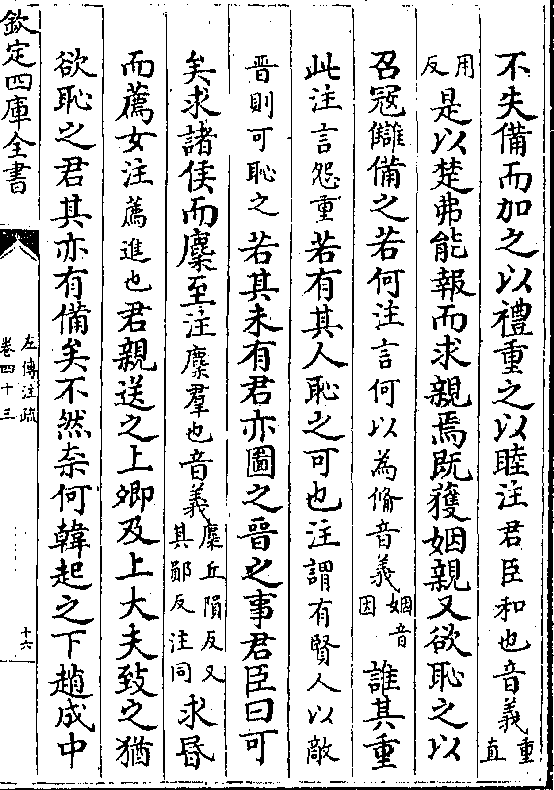 不失備而加之以禮重之以睦注君臣和也音義重直
用反是以楚弗能報而求親焉既獲姻親又欲恥之以
召冦讎備之若何注言何以為脩音義姻音因誰其重
此注言怨重若有其人恥之可也注謂有賢人以敵
晉則可恥之若其未有君亦圖之晉之事君臣曰可
矣求諸侯而麇至注麇羣也音義麇丘隕反又其鄖反注同求昏
而薦女注薦進也君親送之上卿及上大夫致之猶
欲恥之君其亦有備矣不然柰何韓起之下趙成中
欽定四庫全書
左傳注疏
卷四十三
十六